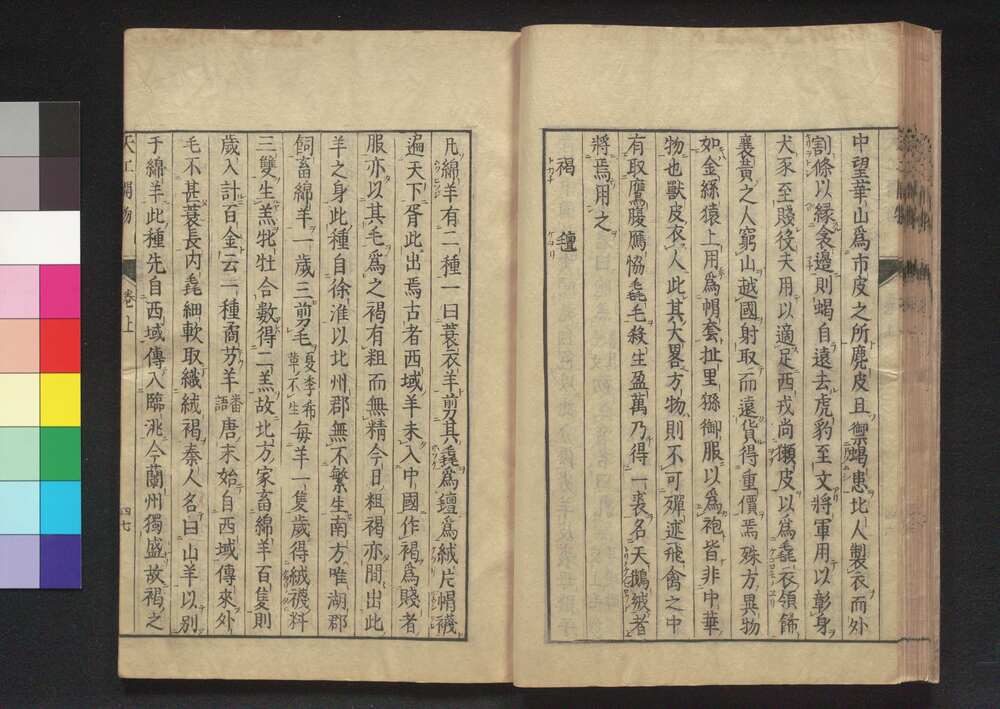 中望華山為市皮之所麂皮且禦蝎患北人製衣而外
割條以縁衾邊則蝎自遠去虎豹至文將軍用以彰身
犬豕至賤役夫用以適足西戎尚獺皮以為毳衣領飾
襄黃之人窮山越國射取而遠貨得重價焉殊方異物
如金絲猿上用為帽套扯里猻御服以為袍皆非中華
物也獸皮衣人此其大畧方物則不可殫述飛禽之中
有取鷹腹鴈恊毳毛殺生盈萬乃得一裘名天鵝絨者
將焉用之
褐氊
凡綿羊有二種一曰蓑衣羊剪其毳為氊為絨片帽襪
遍天下胥此出焉古者西域羊未入中國作褐為賤者
服亦以其毛為之褐有粗而無精今日粗褐亦間出此
羊之身此種自徐淮以北州郡無不繁生南方唯湖郡
飼畜綿羊一歲三剪毛夏季希革不生每羊一隻歲得絨襪料
三雙生羔牝牡合數得二羔故北方家畜綿羊百隻則
歲入計百金云一種矞艻羊番語唐末始自西域傳來外
毛不甚蓑長內毳細軟取織絨褐秦人名曰山羊以別
于綿羊此種先自西域傳入臨洮今蘭州獨盛故褐之
天工開物 卷上 四七